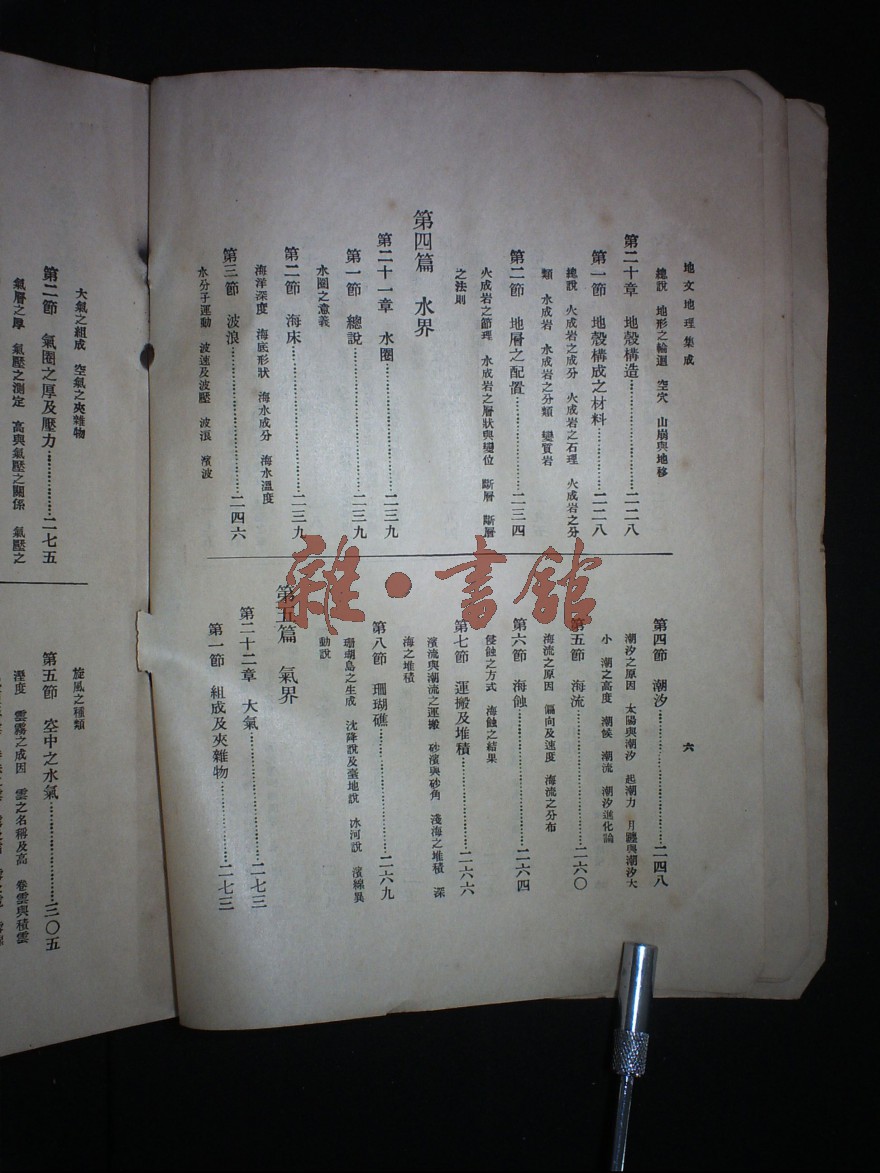 地文地理集成
六
總說　地形之輪迴　空穴　山崩與地移
第二十章　地殼構造……二二八
第一節　地殼構成之材料……二二八
總說　火成岩之成分　火成岩之石理　火成岩之分
類　水成岩　水成岩之分類　變質岩
第二節　地層之配置……二三四
火成岩之節理　水成岩之層狀與變位　斷層　斷層
之法則
第四篇　水界
第二十一章　水圈……二三九
第一節　總說……二三九
水圈之意義
第二節　海床……二三九
海洋深度　海底形狀　海水成分　海水溫度
第三節　波浪……二四六
水分子運動　波速及波壓　波浪　濱波
第四節　潮汐……二四八
潮汐之原因　太陽與潮汐　起潮力　月躔與潮汐大
小　潮之高度　潮候　潮流　潮汐進化論
第五節　海流……二六〇
海流之原因　偏向及速度　海流之分布
第六節　海蝕……二六四
侵蝕之方式　海蝕之結果
第七節　運搬及堆積……二六六
濱流與潮流之運搬　砂濱與砂角　淺海之堆積　深
海之堆積
第八節　珊瑚礁……二六九
珊瑚島之生成　沈降說及臺地說　冰河說　濱線異
動說
第五篇　氣界
第二十二章　大氣……二七三
第一節　組成及夾雜物……二七三
大氣之組成　空氣之夾雜物
第二節　氣圈之厚及壓力……二七五
氣層之厚　氣壓之測定　高與氣壓之關係　氣壓之
旋風之種類
第五節　空中之水氣……三〇五
溼度　雲霧之成因　雲之名稱及高　卷雲與積雲
雜·書館